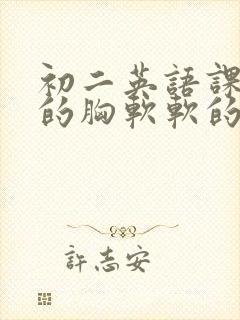 初二英語課
的胸軟軟的
許志安